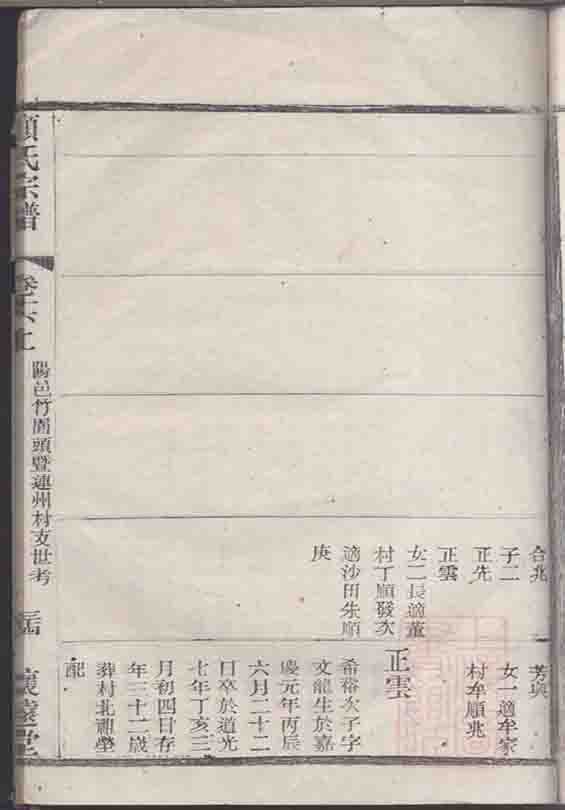 合兆
子二
正先
正雲
女二長適董
村丁順發次
適沙田朱順
庚
芳與
女一適牟家
村牟順兆
正雲
希裕次子字
文龍生於嘉
慶元年丙辰
六月二十二
日卒於道光
七年丁亥三
月初四日存
年三十二歲
葬村北祖塋
配
氏宗譜
卷十六上
陽邑竹園頭暨連州村支世考